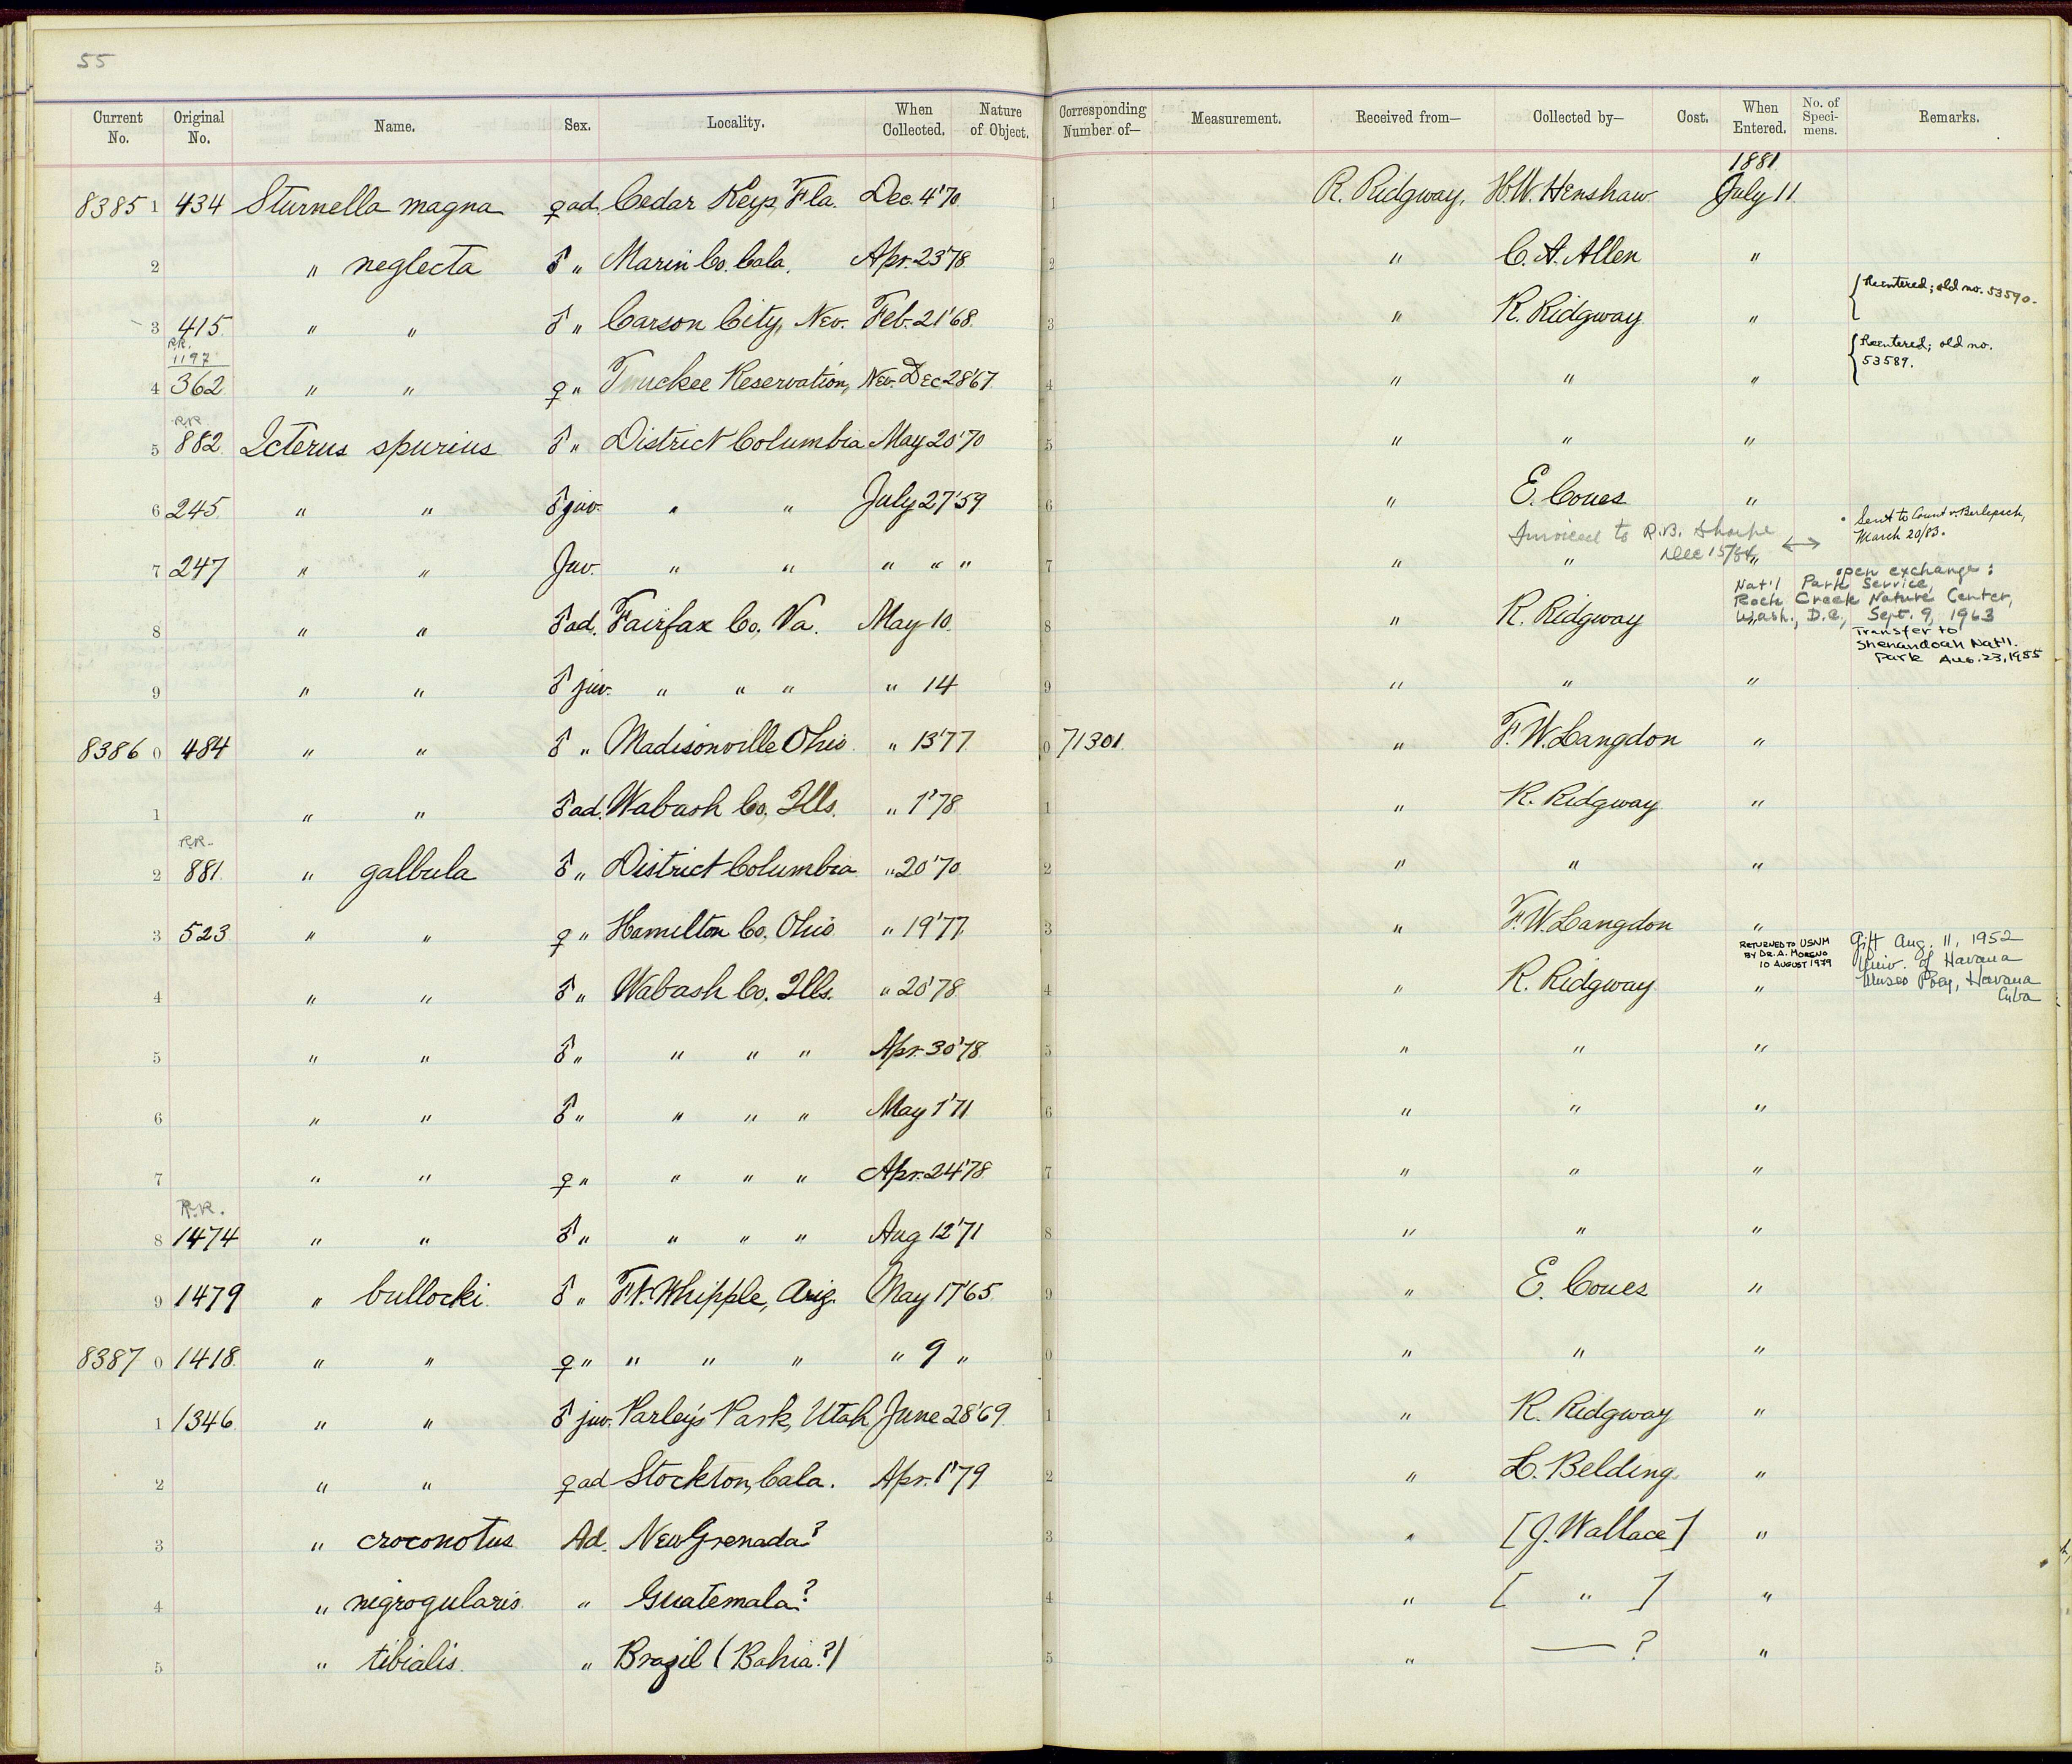 55
Current No. Original No. Name. Sex. Locality. When Collected. Nature of Object. Corresponding Number of— Measurement. Received from— Collected by— Cost. When Entered. No. of Specimens. Remarks.
1881
83851 434 Sturnella magna ♀ ad. Cedar Keys, Fla. Dec. 4 '70 1 R. Ridgway. H.W. Henshaw July 11
2 " neglecta ♂ " Marin Co. Cala. Apr. 23 '78 2 " C. A. Allen "
3 415 " " ♂ " Carson City, Nev. Feb. 21 '68 3 " R. Ridgway " { Reentered; old no. 53590.
R.R. 1197
4 362 " " ♀ " Truckee Reservation, Nev. Dec 28 '67 4 " " " { Reentered; old no. 53589.
R.R.
5 882 Icterus spurius ♂ " District Columbia May 20 '70 5 " " "
6 245 " " ♂ juv. " " July 27 '59 6 " E. Coues " Sent to Count v. Berlepsch, March 20/83.
Invoiced to R.B. Sharpe Dec 15/84 ↔
7 247 " " Juv. " " " " " 7 " " "
open exchange: Nat'l Park Service, Rock Creek Nature Center, Wash., D.C., Sept. 9, 1963
8 " " ♂ ad. Fairfax Co. Va. May 10 8 " R. Ridgway "
Transfer to Shenandoah Nat'l. Park Aug. 23, 1955
9 " " ♂ juv. " " " " 14 9 " " "
83860 484 " " ♂ " Madisonville Ohio " 13 '77 0 71301 " F. W. Langdon "
1 " " ♂ ad. Wabash Co. Ills. " 1 '78 1 " R. Ridgway "
R.R.
2 881 " galbula ♂ " District Columbia " 20 '70 2 " " "
3 523 " " ♀ " Hamilton Co. Ohio " 19 '77 3 " F. W. Langdon "
RETURNED TO USNM BY DR. A. MORENO 10 AUGUST 1979
Gift Aug. 11, 1952 Univ. of Havana Museo Poey, Havana Cuba
4 " " ♂ " Wabash Co. Ills. " 20 '78 4 " R. Ridgway "
5 " " ♂ " " " " Apr. 30 '78 5 " " "
6 " " ♂ " " " " May 1 '71 6 " " "
7 " " ♀ " " " " Apr. 24 '78 7 " " "
R.R.
8 1474 " " ♂ " " " " Aug 12 '71 8 " " "
9 1479 " bullocki ♂ " Ft. Whipple, Ariz. May 17 '65 9 " E. Coues "
83870 1418 " " ♀ " " " " " 9 " 0 " " "
1 1346 " " ♂ juv. Parley's Park, Utah June 28 '69 1 " R. Ridgway "
2 " " ♀ ad Stockton, Cala. Apr. 1 '79 2 " L. Belding "
3 " croconotus Ad. New Grenada? 3 " [J. Wallace] "
4 " nigrogularis " Guatemala? 4 " [ " ] "
5 " tibialis " Brazil (Bahia?) 5 " — ? "